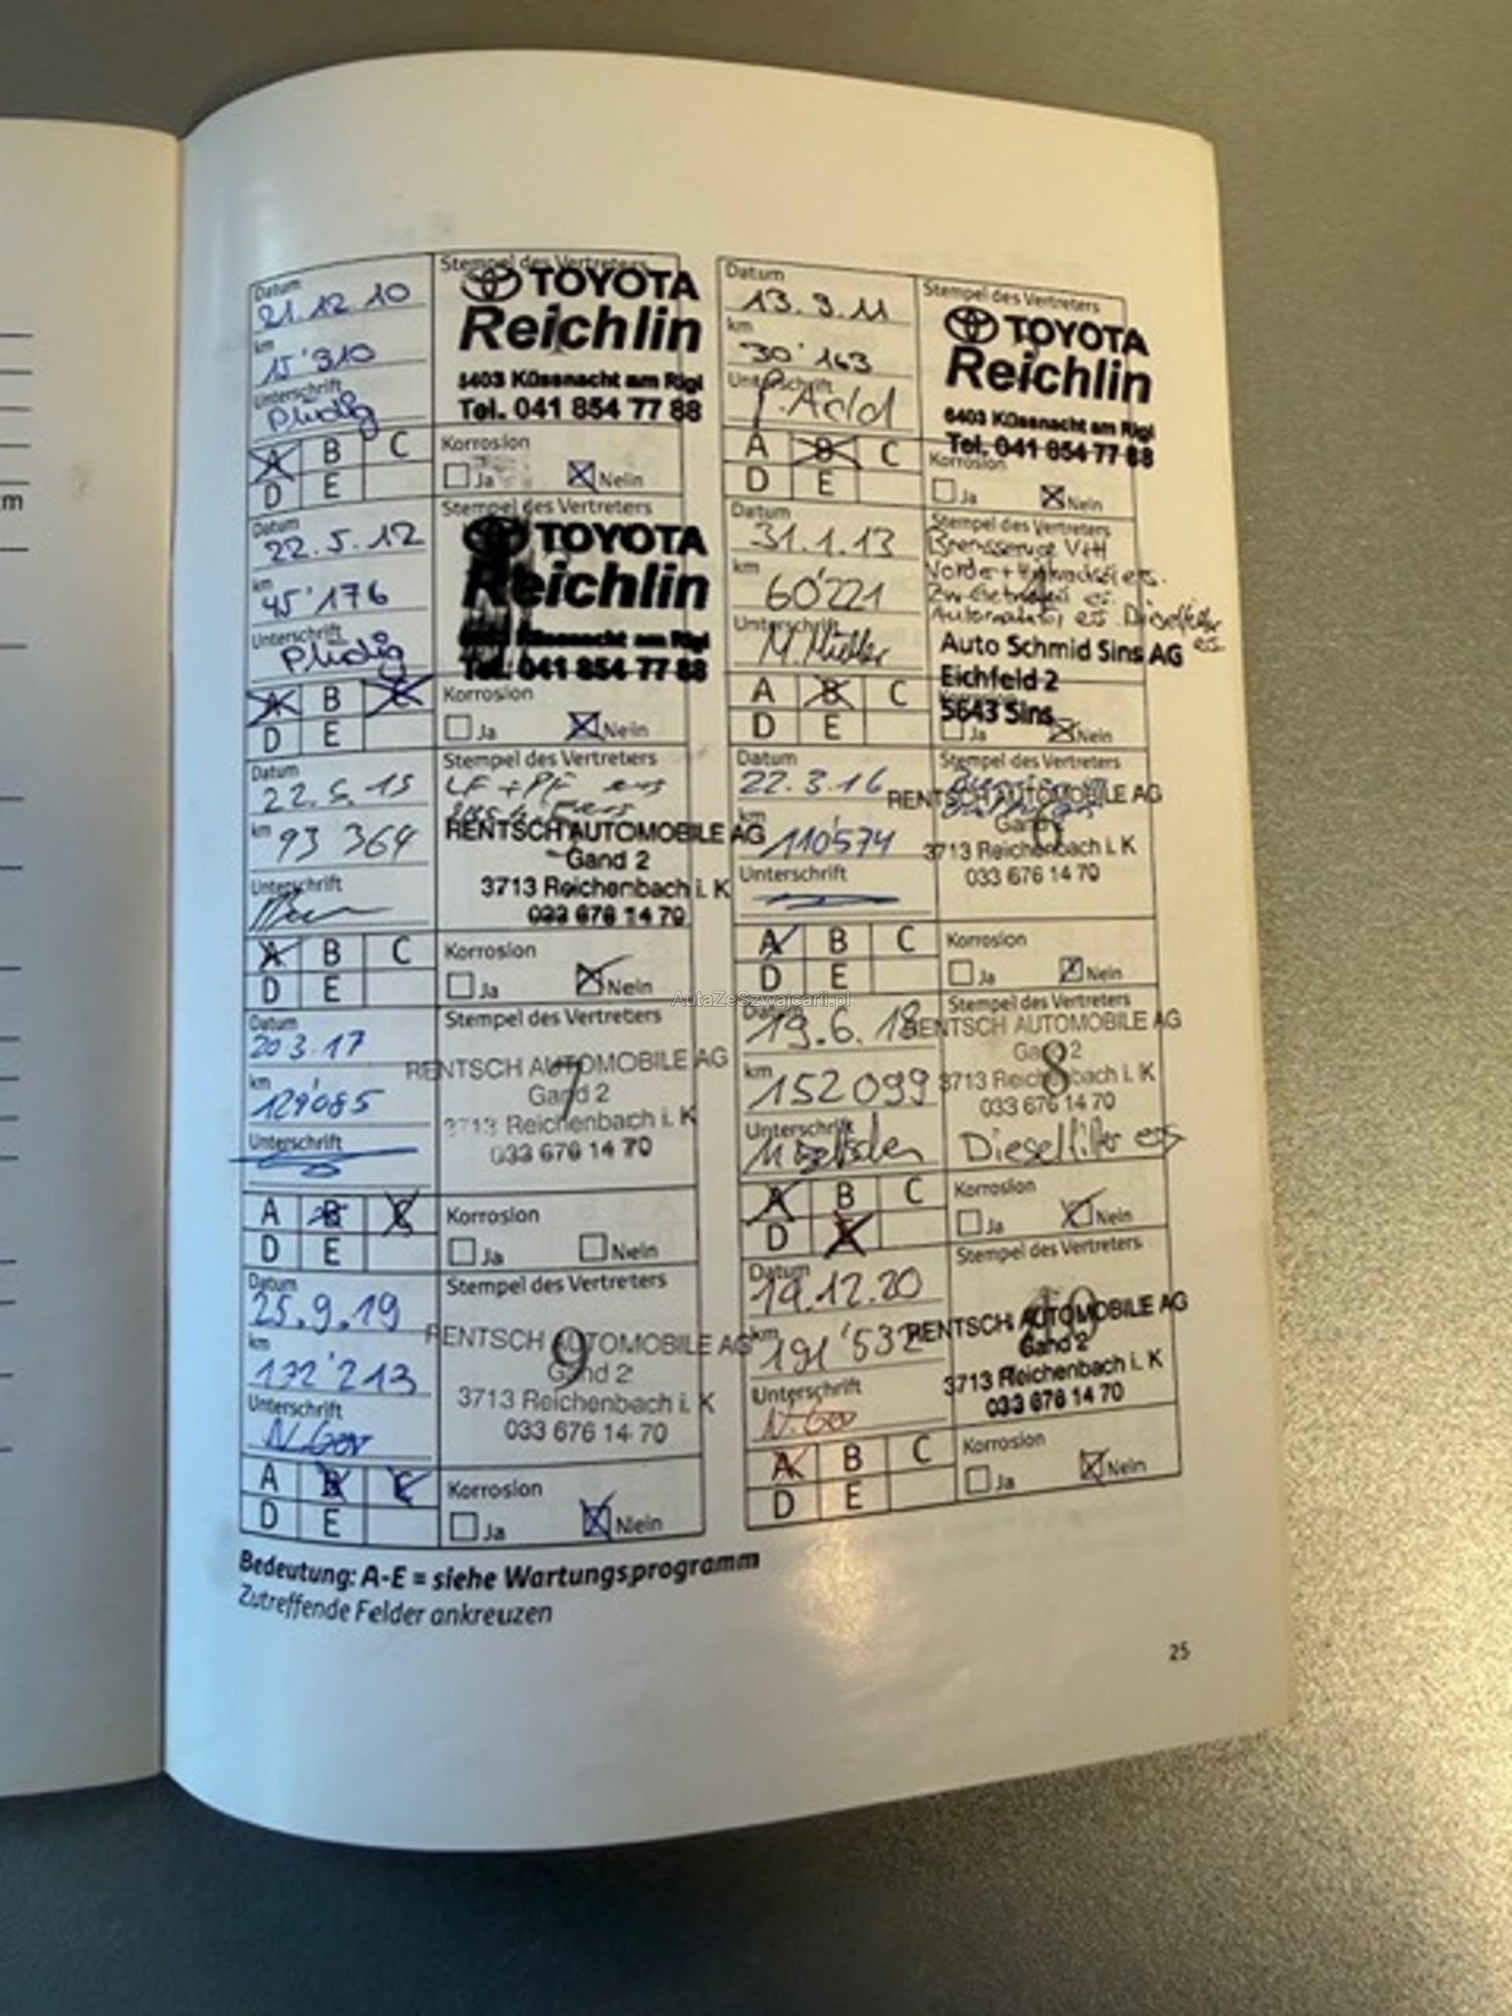 m
Datum
21.12.10
km
15'310
Unterschrift
Stempel des Vertreters
TOYOTA
Reichlin
6403 Küssnacht am Rigi
Tel. 041 854 77 88
A B C
D E
Korrosion
Ja Nein
Datum
13.9.11
km
30'163
Unterschrift
Stempel des Vertreters
TOYOTA
Reichlin
6403 Küssnacht am Rigi
Tel. 041 854 77 88
A B C
D E
Korrosion
Ja Nein
Datum
22.5.12
km
45'176
Unterschrift
Stempel des Vertreters
TOYOTA
Reichlin
6403 Küssnacht am Rigi
Tel. 041 854 77 88
A B C
D E
Korrosion
Ja Nein
Datum
31.1.13
km
60'221
Unterschrift
Stempel des Vertreters
Bremsservice V+H
Auto Schmid Sins AG
Eichfeld 2
5643 Sins
A B C
D E
Ja Nein
Datum
22.5.15
km
93 364
Unterschrift
Stempel des Vertreters
LF + PF ers
RENTSCH AUTOMOBILE AG
Gand 2
3713 Reichenbach i. K
033 676 14 70
A B C
D E
Korrosion
Ja Nein
Datum
22.3.16
km
110'574
Unterschrift
Stempel des Vertreters
RENTSCH AUTOMOBILE AG
Gand 2
6
3713 Reichenbach i. K
033 676 14 70
A B C
D E
Korrosion
Ja Nein
AutaZeSzwajcarii.pl
Datum
20 3.17
km
129'085
Unterschrift
Stempel des Vertreters
RENTSCH AUTOMOBILE AG
7
Gand 2
3713 Reichenbach i. K
033 676 14 70
A B C
D E
Korrosion
Ja Nein
Datum
19.6.18
km
152 099
Unterschrift
Stempel des Vertreters
RENTSCH AUTOMOBILE AG
Gand 2
8
3713 Reichenbach i. K
033 676 14 70
Dieselfilter ers
A B C
D E
Korrosion
Ja Nein
Datum
25.9.19
km
172'213
Unterschrift
Stempel des Vertreters
RENTSCH AUTOMOBILE AG
9
Gand 2
3713 Reichenbach i. K
033 676 14 70
A B C
D E
Korrosion
Ja Nein
Datum
14.12.20
km
191'532
Unterschrift
Stempel des Vertreters
10
RENTSCH AUTOMOBILE AG
Gand 2
3713 Reichenbach i. K
033 676 14 70
A B C
D E
Korrosion
Ja Nein
Bedeutung: A-E = siehe Wartungsprogramm
Zutreffende Felder ankreuzen
25